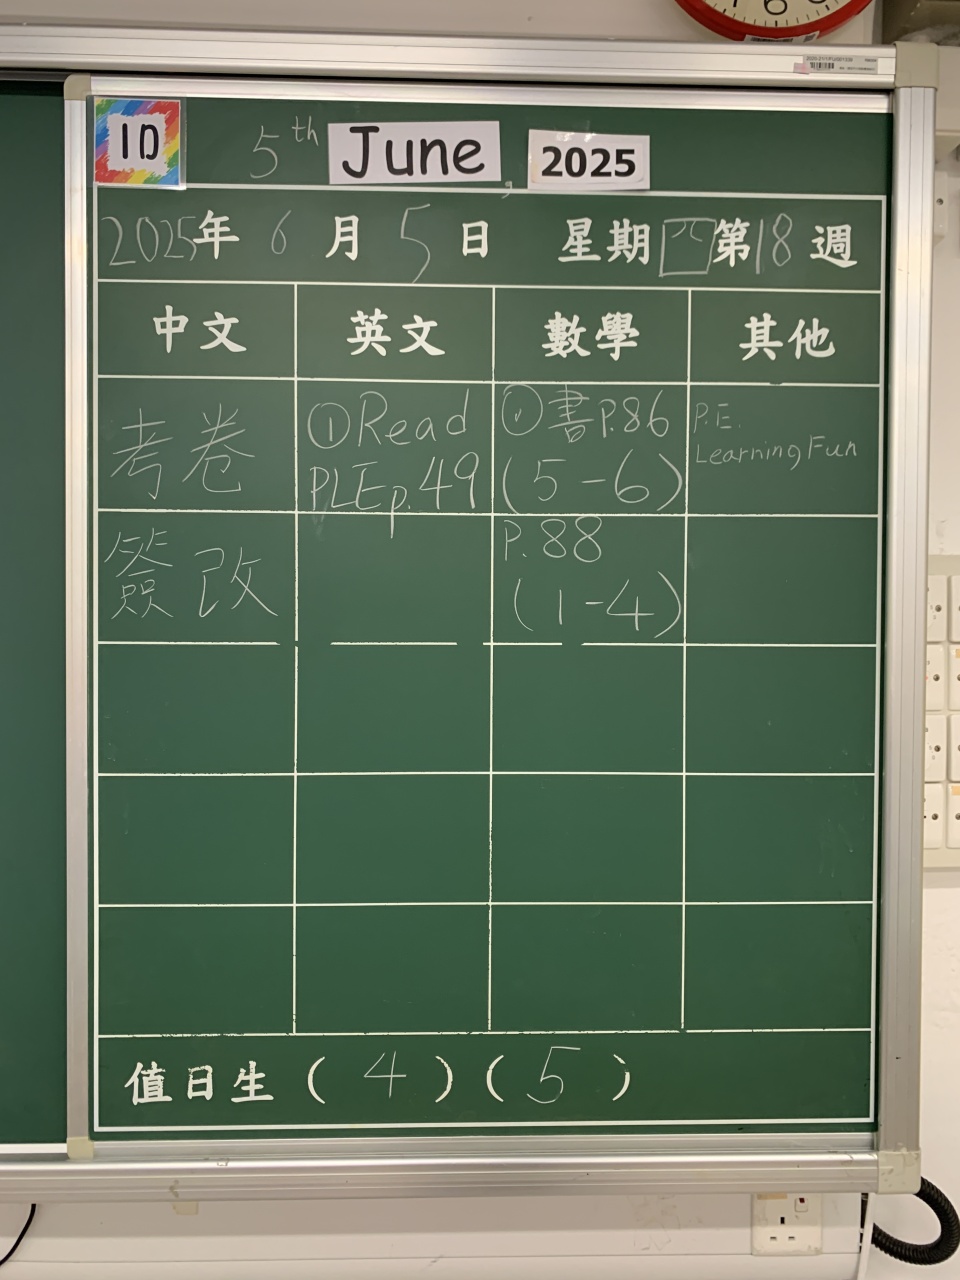 1D 5th June, 2025
2025年 6月 5日 星期四 第18週
中文 英文 數學 其他
考卷
簽改
①Read
PLE p.49
①書P.86
(5-6)
P.88
(1-4)
P.E.
Learning Fun
值日生 ( 4 ) ( 5 )